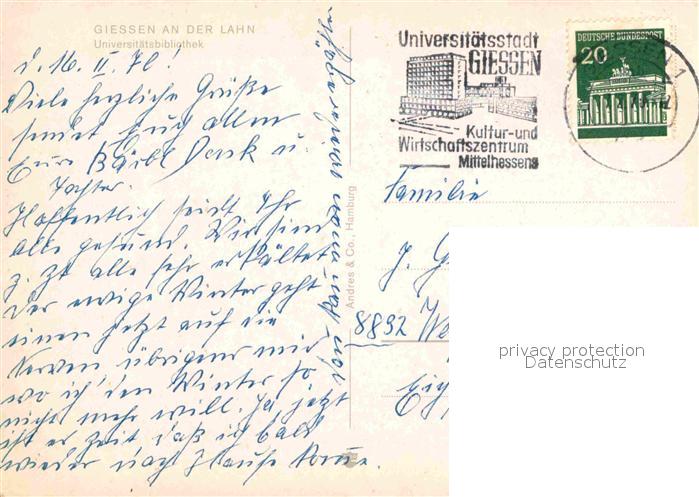 GIESSEN AN DER LAHN
Universitätsbibliothek
d. 16. II. 70!
Viele herzliche Grüße
sendet Euch allen
Eure Bärbl Denk u.
Tochter.
Hoffentlich seidt Ihr
alle gesund. Wir sind
z. Zt alle sehr erkältet
Der ewige Winter geht
einen jetzt auf die
Nerven übrigens mir
wo ich den Winter so
nicht mehr will. Ja jetzt
ist er Zeit daß ich bald
wieder nach Hause komme.
Andres & Co., Hamburg
Universitätsstadt
GIESSEN
Kultur-und
Wirtschaftszentrum
Mittelhessens
DEUTSCHE BUNDESPOST
20
GIESSEN 1
Familie
J. G
8892 We
privacy protection
Datenschutz